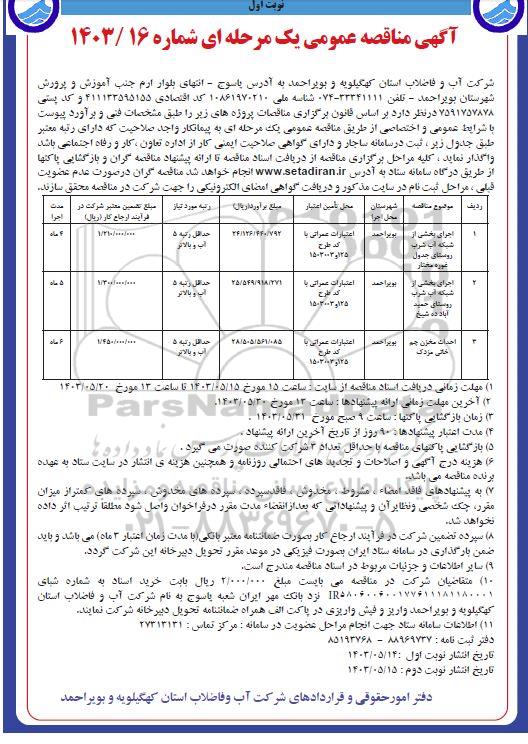 نوبت اول
آگهی مناقصه عمومی یک مرحله ای شماره ۱۶ /۱۴۰۳
شرکت آب و فاضلاب استان کهگیلویه و بویراحمد به آدرس یاسوج - انتهای بلوار ارم جنب آموزش و پرورش
شهرستان بویراحمد - تلفن ۳۳۳۴۱۱۱۱-۰۷۴ شناسه ملی ۱۰۸۶۱۹۷۰۲۱۰ کد اقتصادی ۴۱۱۱۳۳۵۹۵۱۵۵ و کد پستی
۷۵۹۱۷۵۷۸۷۸ درنظر دارد بر اساس قانون برگزاری مناقصات پروژه های زیر را طبق مشخصات فنی و برآورد پیوست
با شرایط عمومی و اختصاصی از طریق مناقصه عمومی یک مرحله ای به پیمانکار واجد صلاحیت که دارای رتبه معتبر
طبق جدول زیر ، ثبت درسامانه ساجار و دارای گواهی صلاحیت ایمنی کار از اداره تعاون ،کار و رفاه اجتماعی باشد
واگذار نماید ، کلیه مراحل برگزاری مناقصه از دریافت اسناد مناقصه تا ارائه پیشنهاد مناقصه گران و بازگشایی پاکتها
از طریق درگاه سامانه ستاد به آدرس www.setadiran.ir انجام خواهد شد مناقصه گران درصورت عدم عضویت
قبلی ، مراحل ثبت نام در سایت مذکور و دریافت گواهی امضای الکترونیکی را جهت شرکت در مناقصه محقق سازند.
ردیف موضوع مناقصه شهرستان محل اجرا محل تأمین اعتبار مبلغ برآورد(ریال) رتبه مورد نیاز مبلغ تضمین شرکت در فرآیند ارجاع کار (ریال) مدت اجرا
۱ اجرای بخشی از شبکه آب شرب روستای جدول غوره مختار بویراحمد اعتبارات عمرانی با کد طرح ۱۵۰۳۰۰۳و۱۲۵ ۲۴/۱۲۶/۴۶۰/۷۹۲ حداقل رتبه ۵ آب و بالاتر ۱/۲۱۰/۰۰۰/۰۰۰ ۴ ماه
۲ اجرای بخشی از شبکه آب شرب روستای حمید آباد ده شیخ بویراحمد اعتبارات عمرانی با کد طرح ۱۵۰۳۰۰۳و۱۲۵ ۲۵/۵۴۹/۹۱۸/۲۷۱ حداقل رتبه ۵ آب و بالاتر ۱/۳۰۰/۰۰۰/۰۰۰ ۵ ماه
۳ احداث مخزن چم خانی مزدک بویراحمد اعتبارات عمرانی با کد طرح ۱۵۰۳۰۰۳و۱۲۵ ۲۸/۵۰۵/۵۶۱/۰۸۵ حداقل رتبه ۵ آب و بالاتر ۱/۴۵۰/۰۰۰/۰۰۰ ۶ ماه
۱) مهلت زمانی دریافت اسناد مناقصه از سایت : ساعت ۱۵ مورخ ۱۴۰۳/۰۵/۱۵ تا ساعت ۱۳ مورخ ۱۴۰۳/۰۵/۲۰
۲) آخرین مهلت زمانی ارائه پیشنهادها : ساعت ۱۳ مورخ ۱۴۰۳/۰۵/۳۰.
۳) زمان بازگشایی پاکتها : ساعت ۹ صبح مورخ ۱۴۰۳/۰۵/۳۱ .
۴) مدت اعتبار پیشنهادها : ۹۰ روز از تاریخ آخرین ارائه پیشنهاد ،
۵) بازگشایی پاکتهای مناقصه با حداقل تعداد ۳ شرکت کننده صورت می گیرد .
۶) هزینه درج آگهی و اصلاحات و تجدید های احتمالی روزنامه و همچنین هزینه ی انتشار در سایت ستاد به عهده
برنده مناقصه می باشد.
۷) به پیشنهادهای فاقد امضاء ، مشروط ، مخدوش ، فاقدسپرده ، سپرده های مخدوش ، سپرده های کمتراز میزان
مقرر، چک شخصی ونظایر آن و پیشنهاداتی که بعدازانقضاء مدت مقرر درفراخوان واصل شود مطلقا ترتیب اثر داده
نخواهد شد.
۸) سپرده تضمین شرکت در فرآیند ارجاع کار بصورت ضمانتنامه معتبر بانکی(با مدت زمان اعتبار ۳ ماه) می باشد و باید
ضمن بارگذاری در سامانه ستاد ایران بصورت فیزیکی در موعد مقرر تحویل دبیرخانه این شرکت گردد.
۹) سایر اطلاعات و جزئیات مربوط در اسناد مناقصه مندرج است.
۱۰) متقاضیان شرکت در مناقصه می بایست مبلغ ۲/۰۰۰/۰۰۰ ریال بابت خرید اسناد به شماره شبای
IR۵۸۰۶۰۰۶۰۰۱۷۷۶۱۱۱۸۱۱۸۰۰۰۱ نزد بانک مهر ایران شعبه یاسوج به نام شرکت آب و فاضلاب استان
کهگیلویه و بویراحمد واریز و فیش واریزی در پاکت الف همراه ضمانتنامه تحویل دبیرخانه شرکت نمایند.
۱۱) اطلاعات سامانه ستاد جهت انجام مراحل عضویت در سامانه : مرکز تماس : ۲۷۳۱۳۱۳۱
دفتر ثبت نامه : ۸۸۹۶۹۷۳۷ - ۸۵۱۹۳۷۶۸
تاریخ انتشار نوبت اول :۱۴۰۳/۰۵/۱۴
تاریخ انتشار نوبت دوم : ۱۴۰۳/۰۵/۱۵
دفتر امورحقوقی و قراردادهای شرکت آب وفاضلاب استان کهگیلویه و بویراحمد